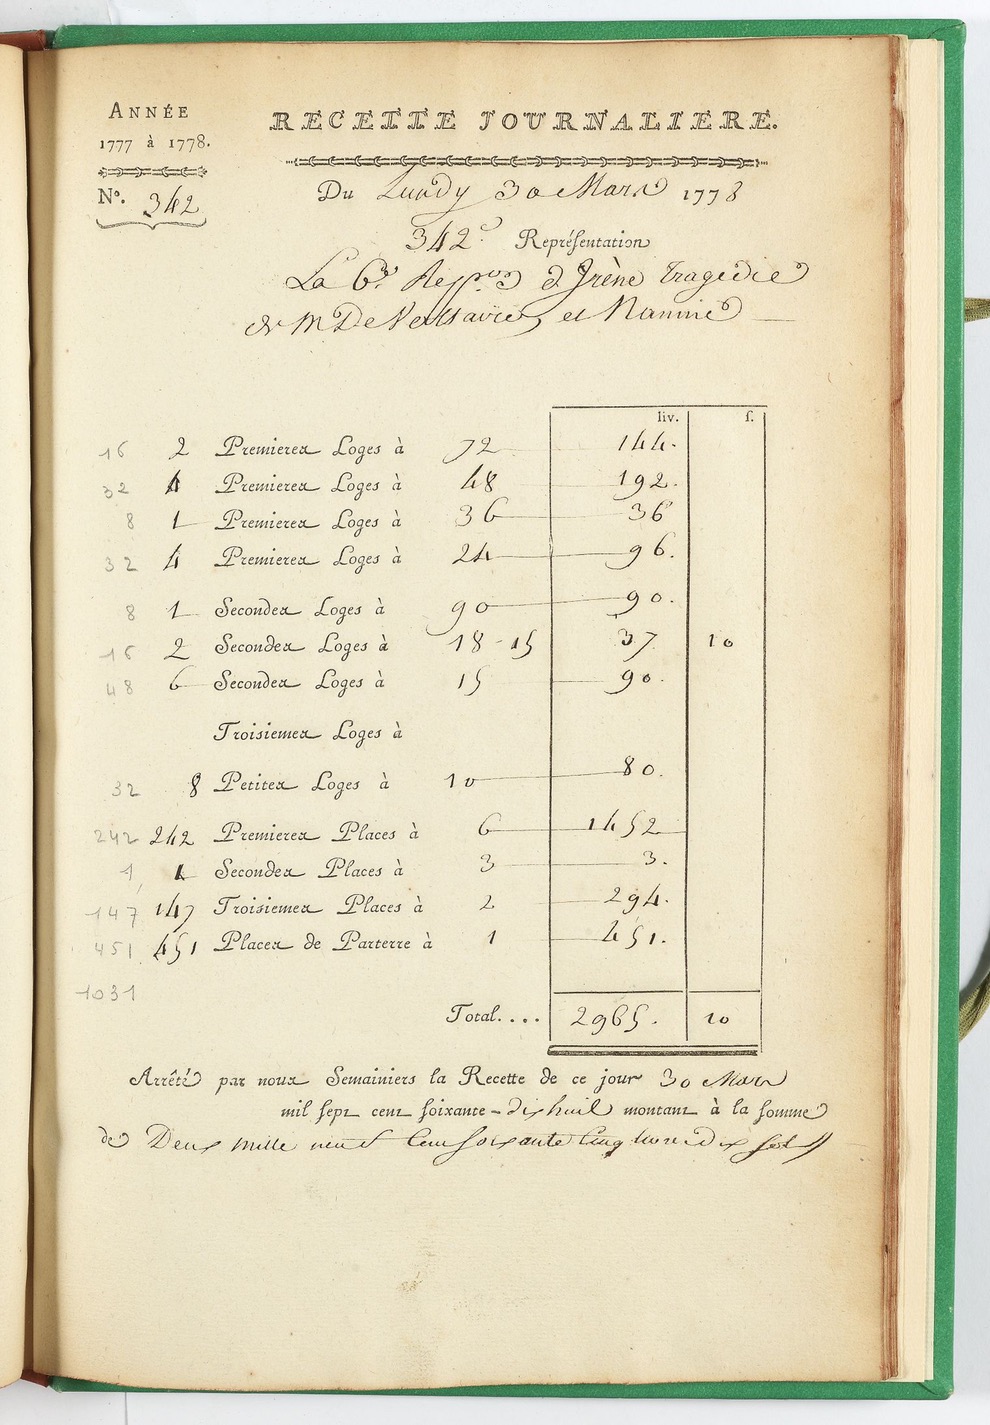 ANNÉE
1777 à 1778.
N°. 342
RECETTE JOURNALIERE.
Du Lundy 30 Mars 1778
342e. Représentation
La 6e. Repron d'Irène tragedie
de M. De Voltaire, et Nanine
liv. s.
16 2 Premieres Loges à 72 144.
32 4 Premieres Loges à 48 192.
8 1 Premieres Loges à 36 36
32 4 Premieres Loges à 24 96.
8 1 Secondes Loges à 90 90.
16 2 Secondes Loges à 18-15 37 10
48 6 Secondes Loges à 15 90.
Troisiemes Loges à
32 8 Petites Loges à 10 80.
242 242 Premieres Places à 6 1452
1 1 Secondes Places à 3 3.
147 147 Troisiemes Places à 2 294.
451 451 Places de Parterre à 1 451.
1031
Total.... 2965. 10
Arrêté par nous Semainiers la Recette de ce jour 30 Mars
mil sept cent soixante-dix huit montant à la somme
de Deux mille neuf Cent soixante Cinq livres Dix sols